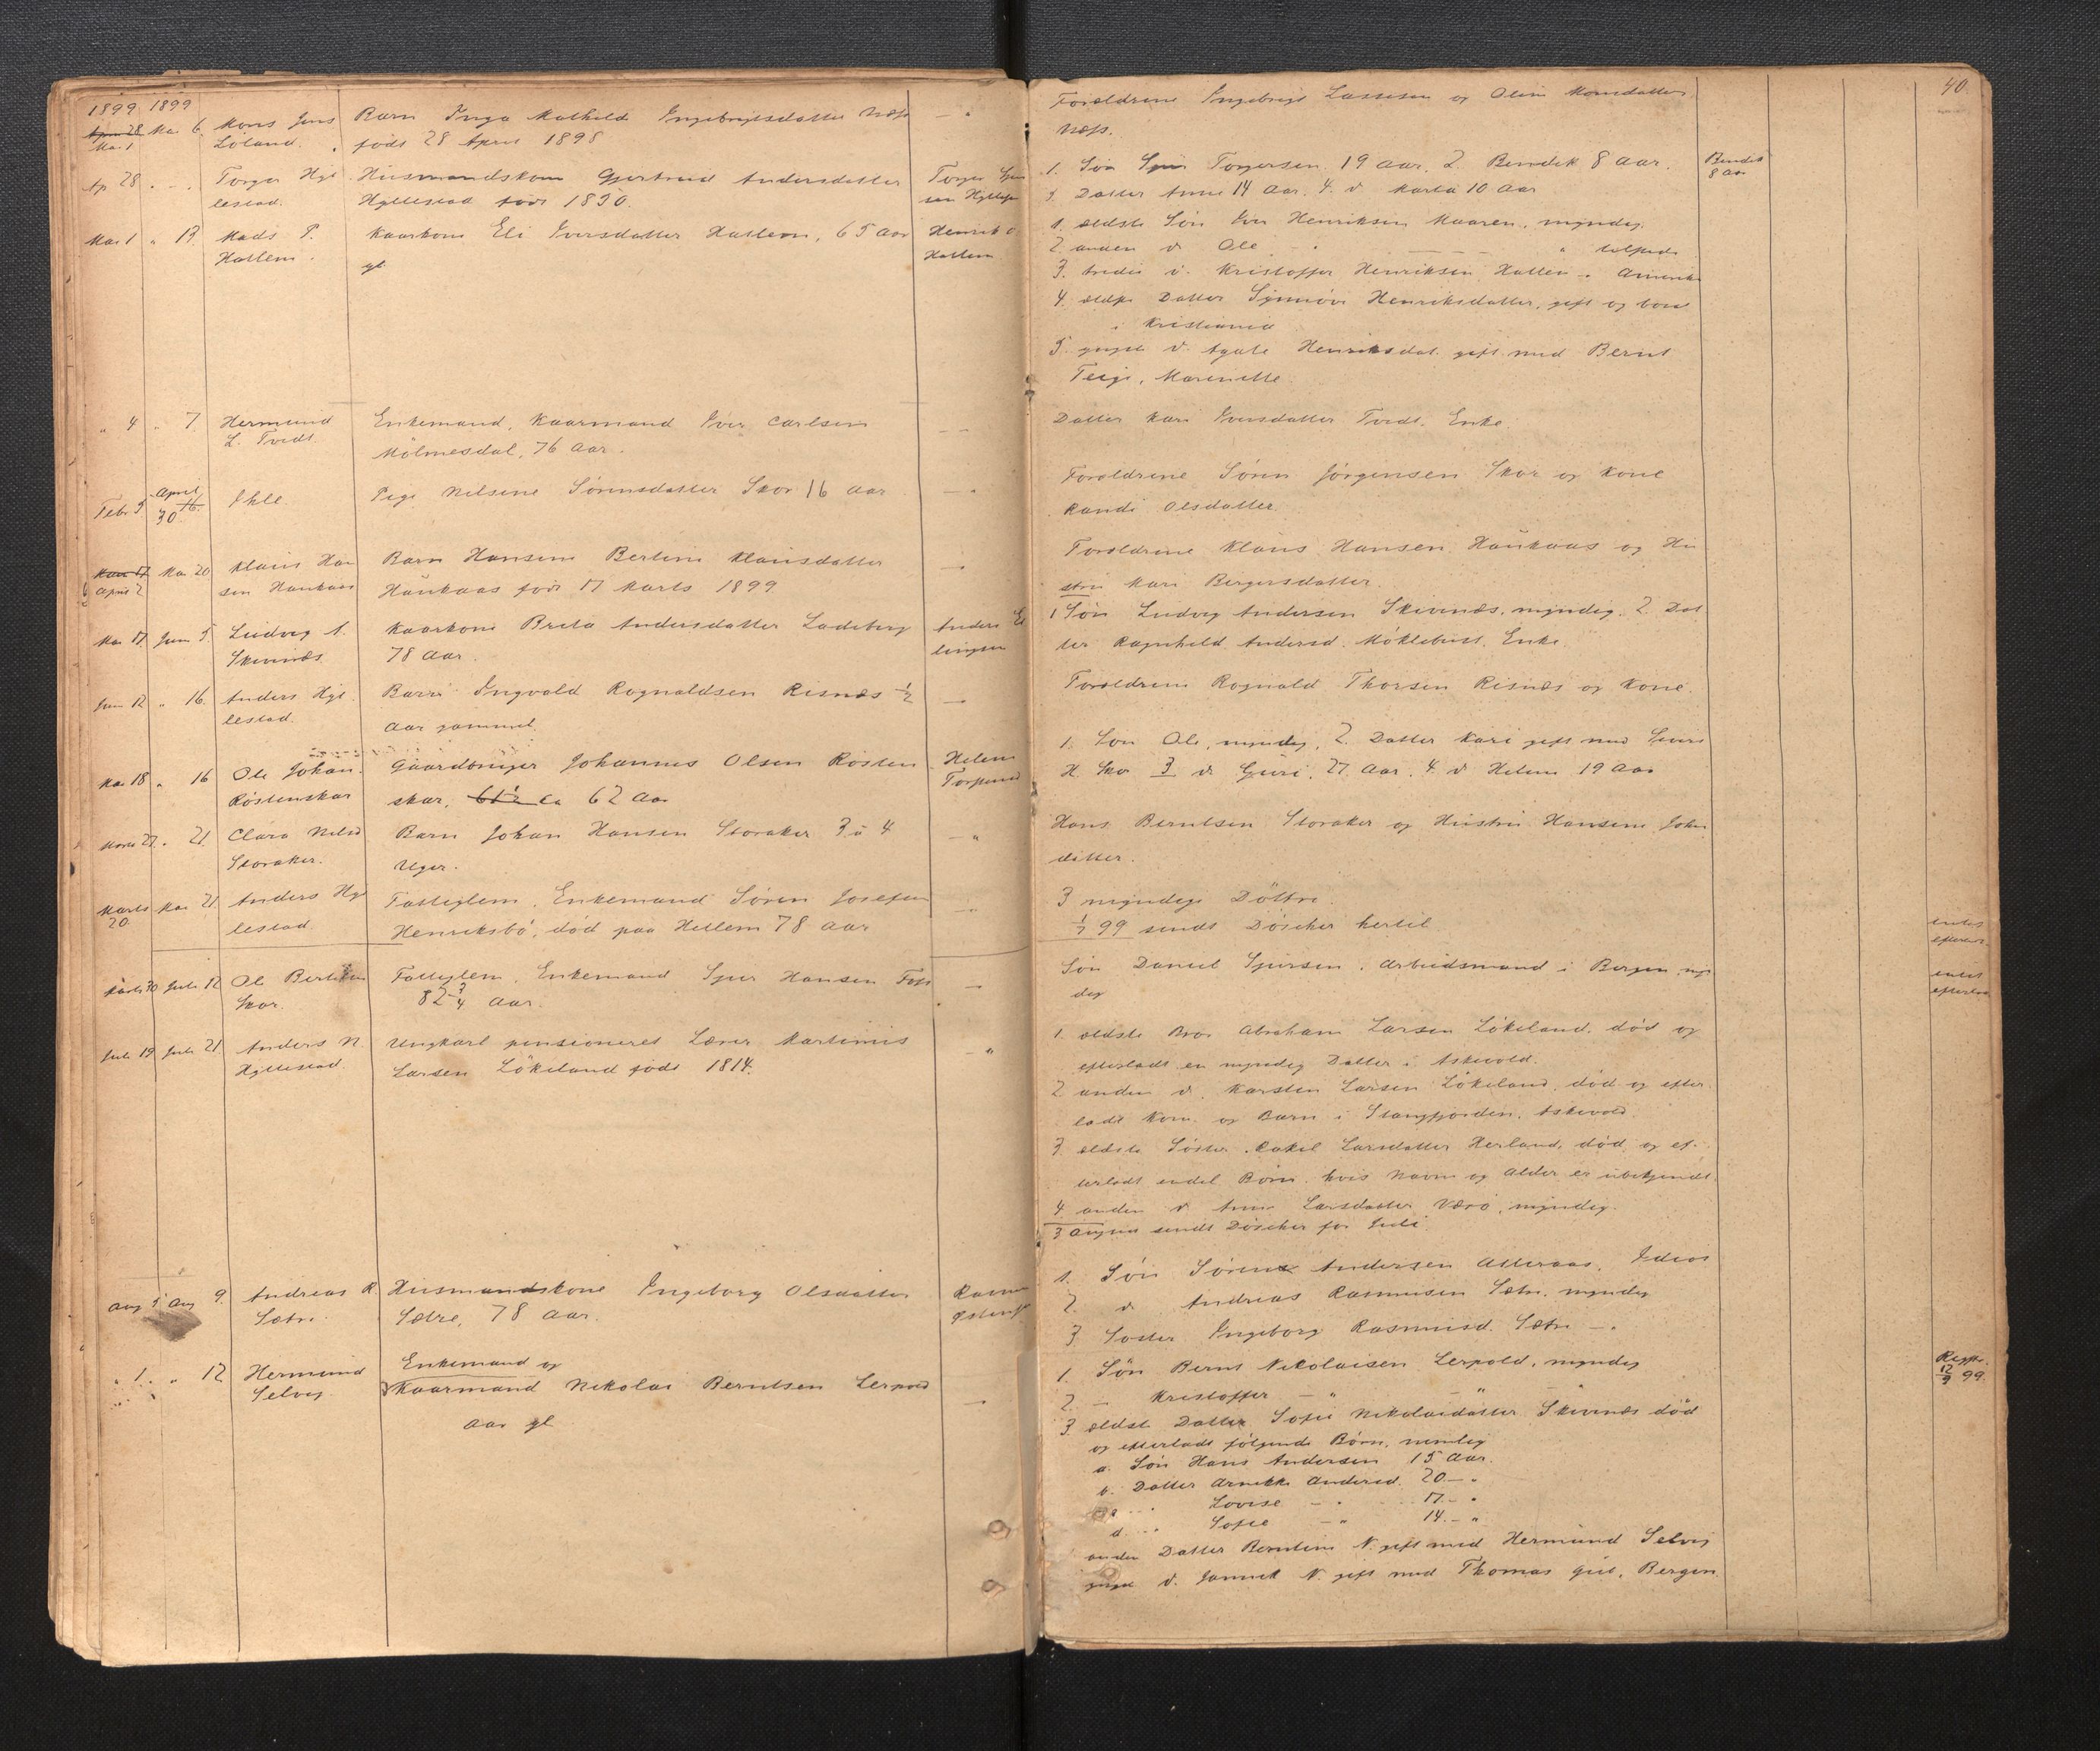 1899 1899
Mai 1 Mai 6. Mons Jens Barn Inga Mathilde Ingebrigtsdatter Næss — "
Löland. født 28 April 1898
Ap 28 " — Torger Hyl Husmandskone Gjertrud Andersdatter Torger
lestad. Hyllestad født 1830.
Mai 1 " 13. Mads P. Kaarkone Eli Iversdatter Hatlem, 65 Aar Henrik O
Hatlem. gl. Hatlem
" 4 " 7 Hermund Enkemand, Kaarmand Iver Carlsen — —
L. Tvedt. Mölmesdal, 76 Aar.
Febr 5 April 16. 30. Ihle. Pige Nilsine Sörensdatter Skor 16 Aar — "
Mar 17 Mai 20 Klaus Han Barn Hansine Bertine Klausdatter —
April 2 sen Haukaas Haukaas född 17 Marts 1899
Mai 17. Juni 5. Ludvig A. Kaarkone Brita Andersdatter Ladeberg Anders El
Skivenæs 78 Aar. lingsen
Juni 12 " 16. Anders Hyl Barn Ingvald Rognaldsen Risnæs ½ —
lestad. Aar gammel.
Mai 18 " 16 Ole Johan Gaardbruger Johannes Olsen Rösten Helene
Röstenskar skar, 61½ ca 62 Aar
" 21. Clara Nilsd Barn Johan Hansen Storaker 3 à 4 — "
Storaker. Uger.
Marts Mai 21. Anders Hyl Fattiglem, Enkemand Sören Josefsen —
20. lestad. Henriksbö, död paa Hellem 78 Aar
Marts 30 Juli 12 Ole Bertelsen Fattiglem, Enkemand Sjur Hansen Foss —
Skor. 82¾ Aar.
Juli 19 Juli 21. Anders N. Ungkarl pensioneret Lærer Martinus — "
Hyllestad Larsen Lökeland född 1814.
Aug 5 Aug 9. Andreas R. Husmandskone Ingeborg Olsdatter
Sætre. Sætre, 78 Aar.
" 1. " 12 Hermund Enkemand og
Selvig Kaarmand Nikolai Berntsen Lerpold —
Aar gl
40.
Forældrene Ingebrigt Lassesen og Oline Monsdatter
Næss.
1. Sön Sjur Torgersen 19 Aar. 2. Bendik 8 Aar. Bendik
3. Datter Anne 14 Aar. 4. d. Marta 10 Aar 8 Aar
1. ældste Sön Iver Henriksen Maaren, myndig.
2. anden d. Ole — " — — "
3. tredie d. Kristoffer Henriksen Hatlem — " Amerika
4. ældste Datter Synnöve Henriksdatter, gift og bor
i Kristiania
5. yngste d. Agate Henriksdat. gift med Bernt
Teige,
Datter Kari Iversdatter Tvedt. Enke.
Forældrene Sören Jörgensen Skor og Kone
Randi Olsdatter.
Forældrene Klaus Hansen Haukaas og Hu
stru Mari Bergersdatter.
1 Sön Ludvig Andersen Skivenæs, myndig. 2. Dat
ter Ragnhild Andersd. Möklebust. Enke.
Forældrene Rognald Thorsen Risnæs og Kone.
1. Sön Ole, myndig, 2. Datter Kari gift med Sivert
H. Skor 3 d. Guri, 27 Aar. 4. d Helene 19 Aar
Hans Berntsen Storaker og Hustru Hansine Johns
datter.
3 myndige Döttre.
1/7 99 sendt Döscher hertil
intet
Sön Daniel Sjursen, Arbeidsmand i Bergen, myn
dig intet
1. ældste Bror Abraham Larsen Lökeland, död og
efterladt en myndig Datter i Askevold.
2 anden d. Karsten Larsen Lökeland, död og efter
ladt Kone og Barn i Stangfjorden, Askevold.
3 ældste Söster Rakel Larsdatter Herland, död og ef-
terladt endel Börn, hvis Navn og Alder er ubekjendt
4. anden d. Anne Larsdatter Værö, myndig.
3 August sendt Döscher for Juli.
1. Sön Sören Andersen Atteraas, Idiot
2. d. Andreas Rasmusen Sætre, myndig
3 Söster Ingeborg Rasmusd. Sætre — "
1. Sön Bernt Nikolaisen Lerpold, myndig
2. — Kristoffer — " — " — "
12/9 99.
3. ældst Datter Sofie Nikolaidatter Skivenæs död
og efterladt fölgende Börn, nemlig
a. Sön Hans Andersen 15 Aar.
b. Datter Andersd. 20 — "
Lovise — " 17 — "
d. — " Sofie — " 14 — "
anden Datter Berntine N. gift med Hermund Selvig
yngst d. Jannik N. gift med Thomas Bergen.